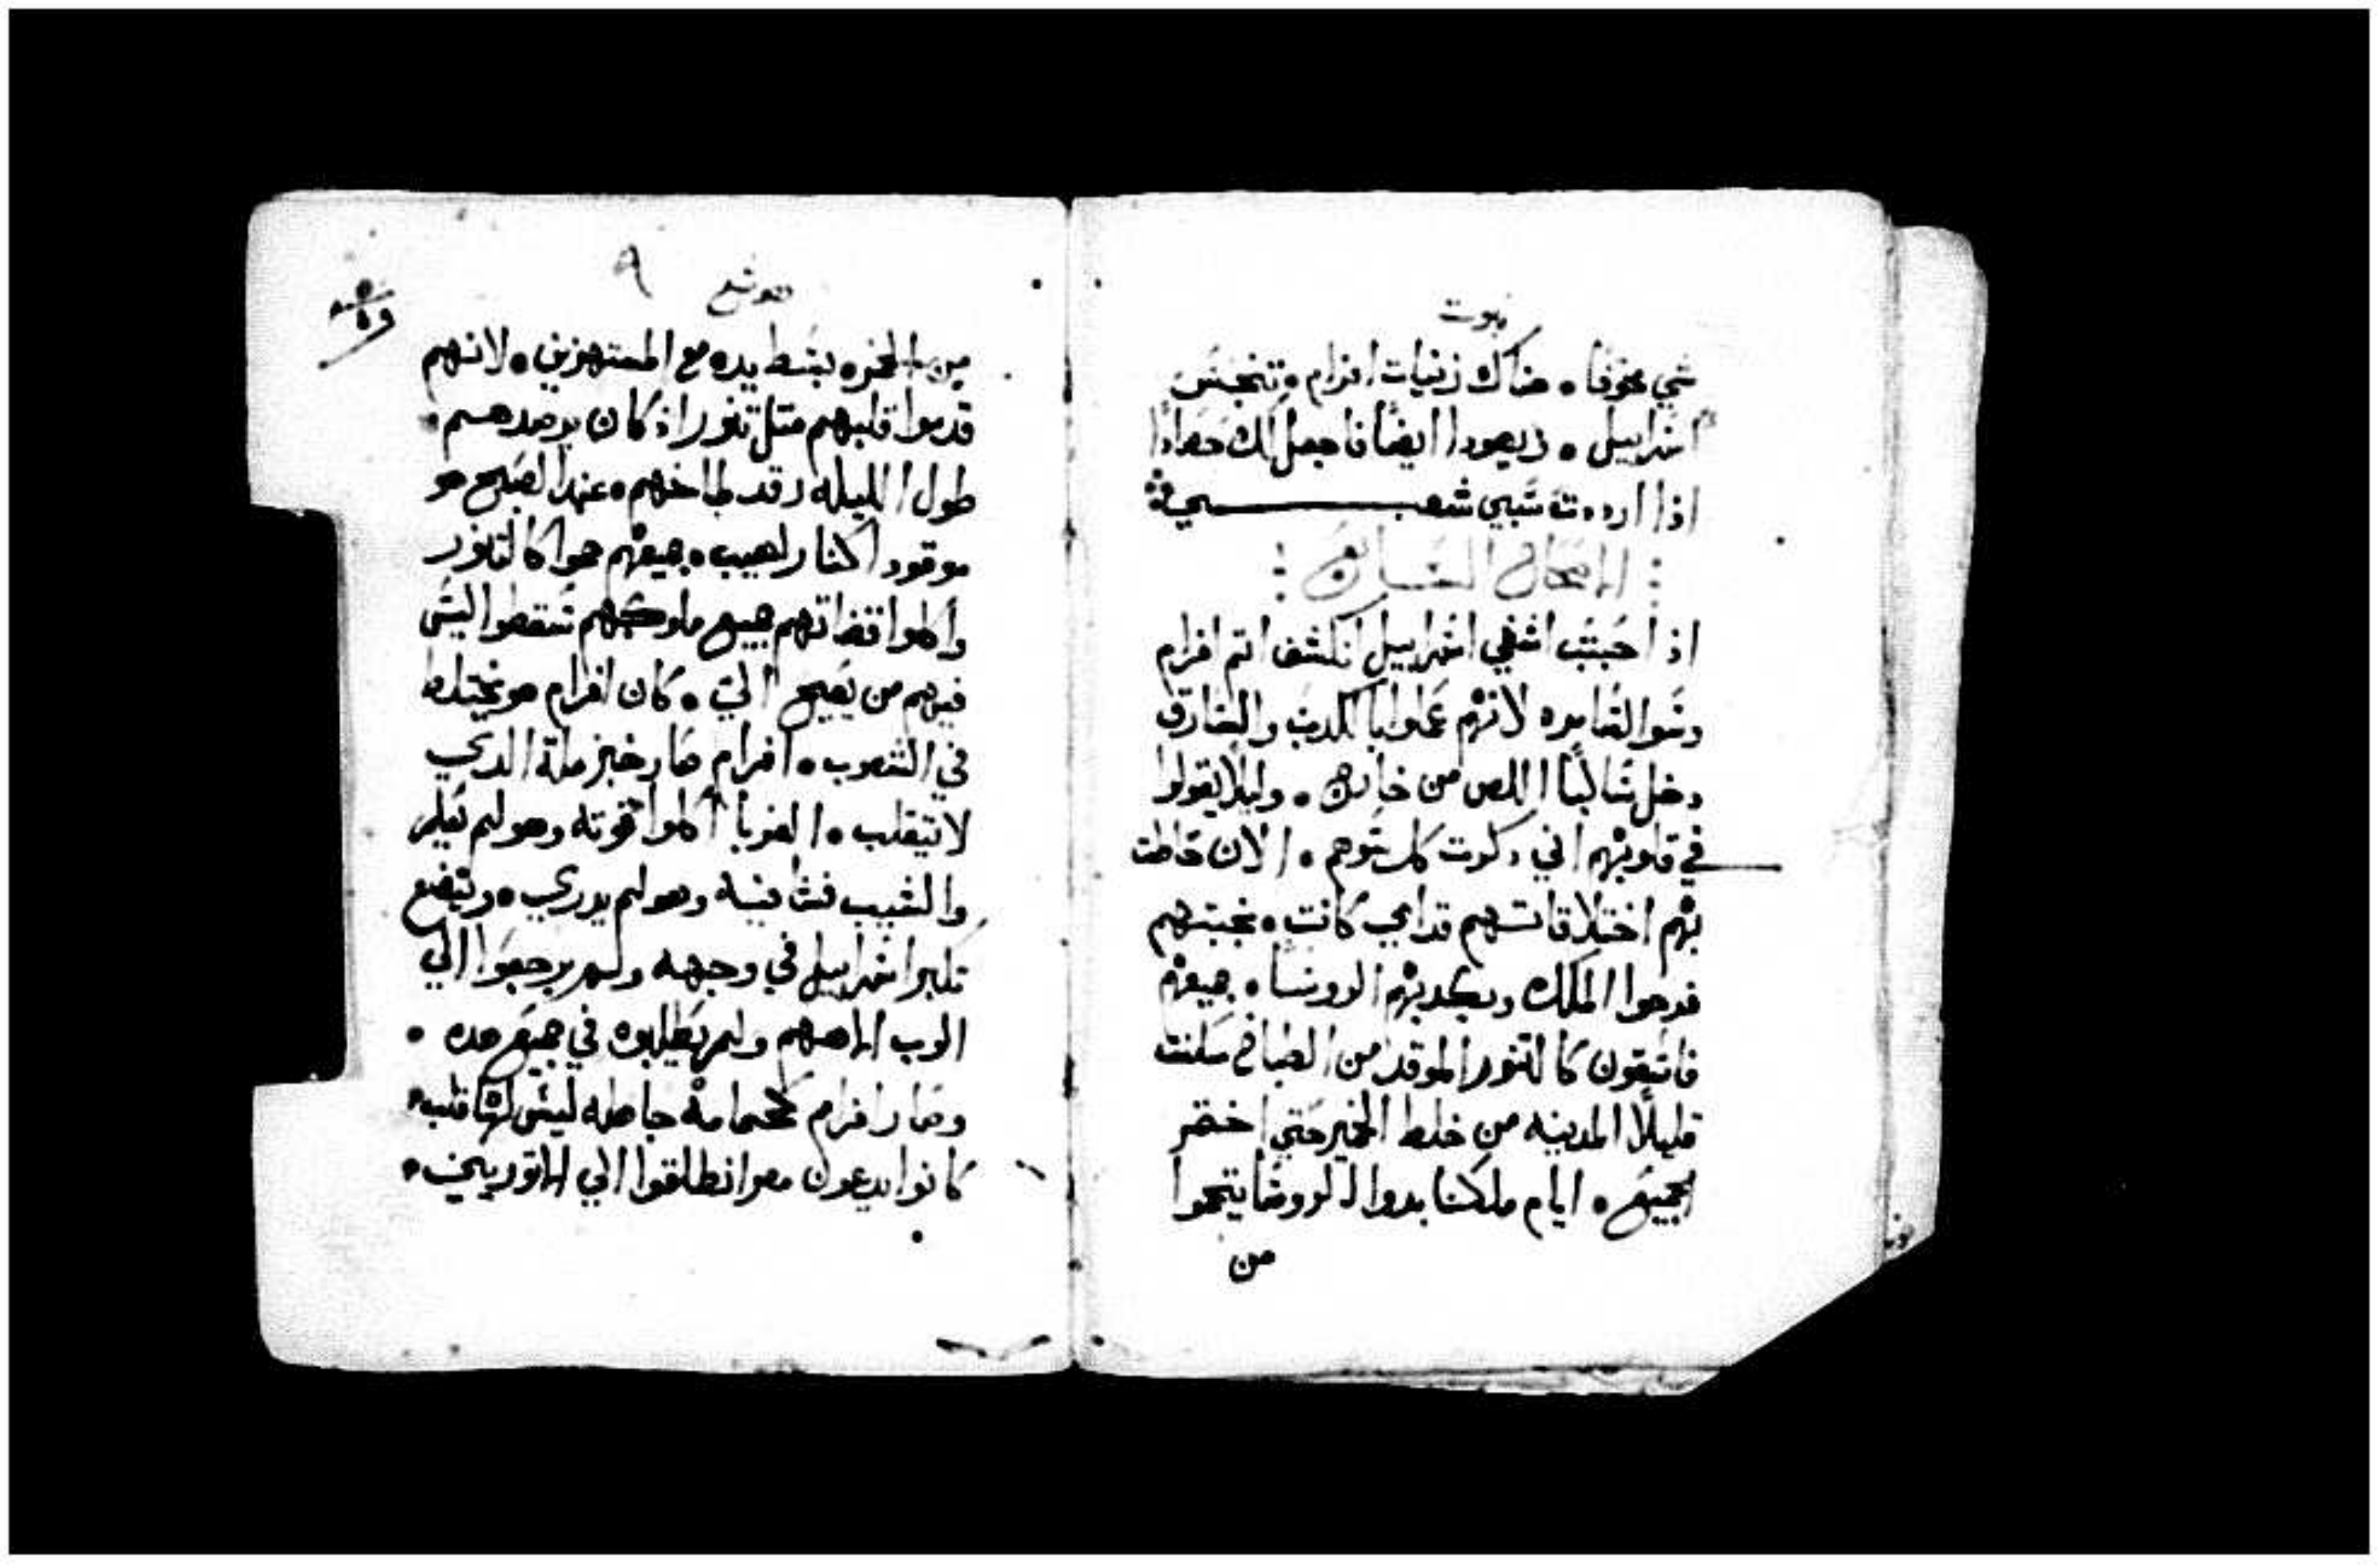 نبوت
شي مخوفا . هناك زنيات افرام . وتنجس
اسراييل . ويهودا ايضًا فاجعل لك حصادًا
اذا اردت سبي شعبي
الاصحاح السابع
اذا احببت اشفي اسراييل انكشف اتم افرام
وسوا السامره لانهم عملوا بالكدب والسارق
دخل سالبًا اللص من خارج . وليلا يقولوا
في قلوبهم اني دكرت كل سوهم . الان حاطت
بهم اختلاقاتهم قدامي كانت . بخبتهم
فرحوا الملك وبكدبهم الروسا . جميعهم
فاسقون كالتنور الموقد من الصباخ سكنت
قليلًا المدينه من خلط الخمير حتي اختمر
الجميع . ايام ملكنا بدوا الروسا يتحموا
من
هوشع ٩
من الخمره بسط يده مع المستهزين . لانهم
قدموا قلبهم متل تنور اذ كان يرصدهم .
طول الليله رقد طباخهم . عند الصبح هو
موقود كنار لهيب . جميعهم حموا كالتنور
واكلوا قضاتهم جميع ملوكهم سقطوا ليس
فيهم من يصيح الي . كان افرام هو يختلط
في الشعوب . افرام صار خبز ملة الدي
لا يتقلب . الغربا اكلوا قوته وهو لم يعلم
والشيب فشا فيه وهو لم يدري . ويتضع
تكبر اسراييل في وجهه ولم يرجعوا الي
الرب الاههم ولم يطلبوه في جميع هده .
وصار افرام كحمامة جاهله ليس لها قلب .
كانوا يدعون مصر انطلقوا الي الاتوريين .